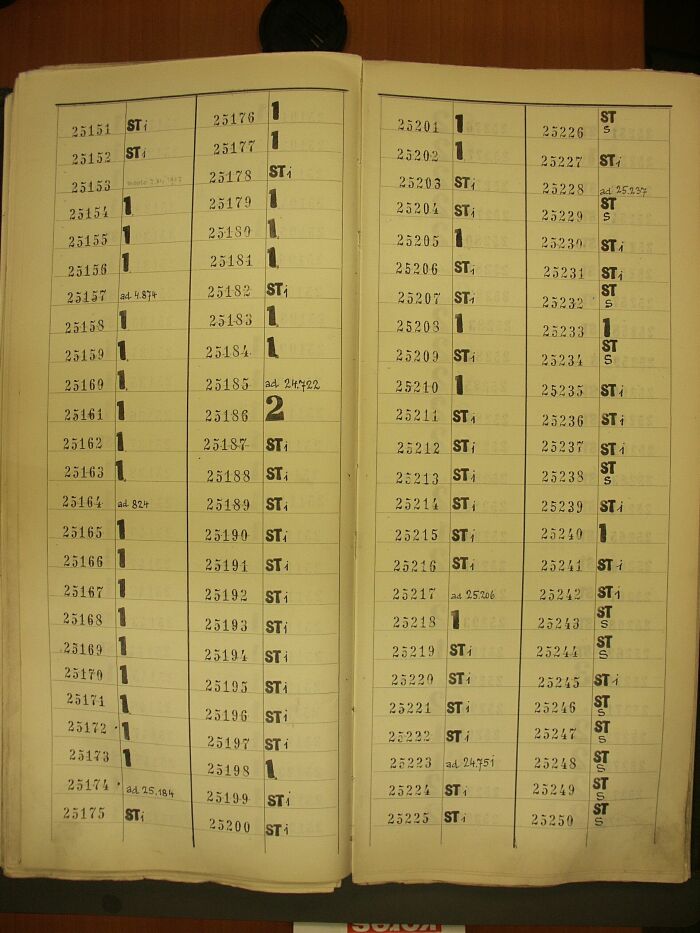 25151 STi
25152 STi
25153
25154 1
25155 1
25156 1
25157 ad 4.874
25158 1
25159 1
25160 1
25161 1
25162 1
25163 1
25164 ad 824
25165 1
25166 1
25167 1
25168 1
25169 1
25170 1
25171 1
25172 1
25173 1
25174 ad 25.184
25175 STi
25176 1
25177 1
25178 STi
25179 1
25180 1
25181 1
25182 STi
25183 1
25184 1
25185 ad 24.722
25186 2
25187 STi
25188 STi
25189 STi
25190 STi
25191 STi
25192 STi
25193 STi
25194 STi
25195 STi
25196 STi
25197 STi
25198 1
25199 STi
25200 STi
25201 1
25202 1
25203 STi
25204 STi
25205 1
25206 STi
25207 STi
25208 1
25209 STi
25210 1
25211 STi
25212 STi
25213 STi
25214 STi
25215 STi
25216 STi
25217 ad 25.206
25218 1
25219 STi
25220 STi
25221 STi
25222 STi
25223 ad 24.751
25224 STi
25225 STi
25226 ST s
25227 STi
25228 ad 25.237
25229 ST s
25230 STi
25231 STi
25232 ST s
25233 1
25234 ST s
25235 STi
25236 STi
25237 STi
25238 ST s
25239 STi
25240 1
25241 STi
25242 STi
25243 ST s
25244 ST s
25245 STi
25246 ST s
25247 ST s
25248 ST s
25249 ST s
25250 ST s